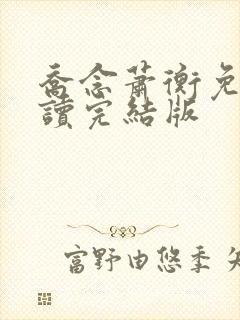 喬念蕭衡免
讀完結版
富野由悠季 矢